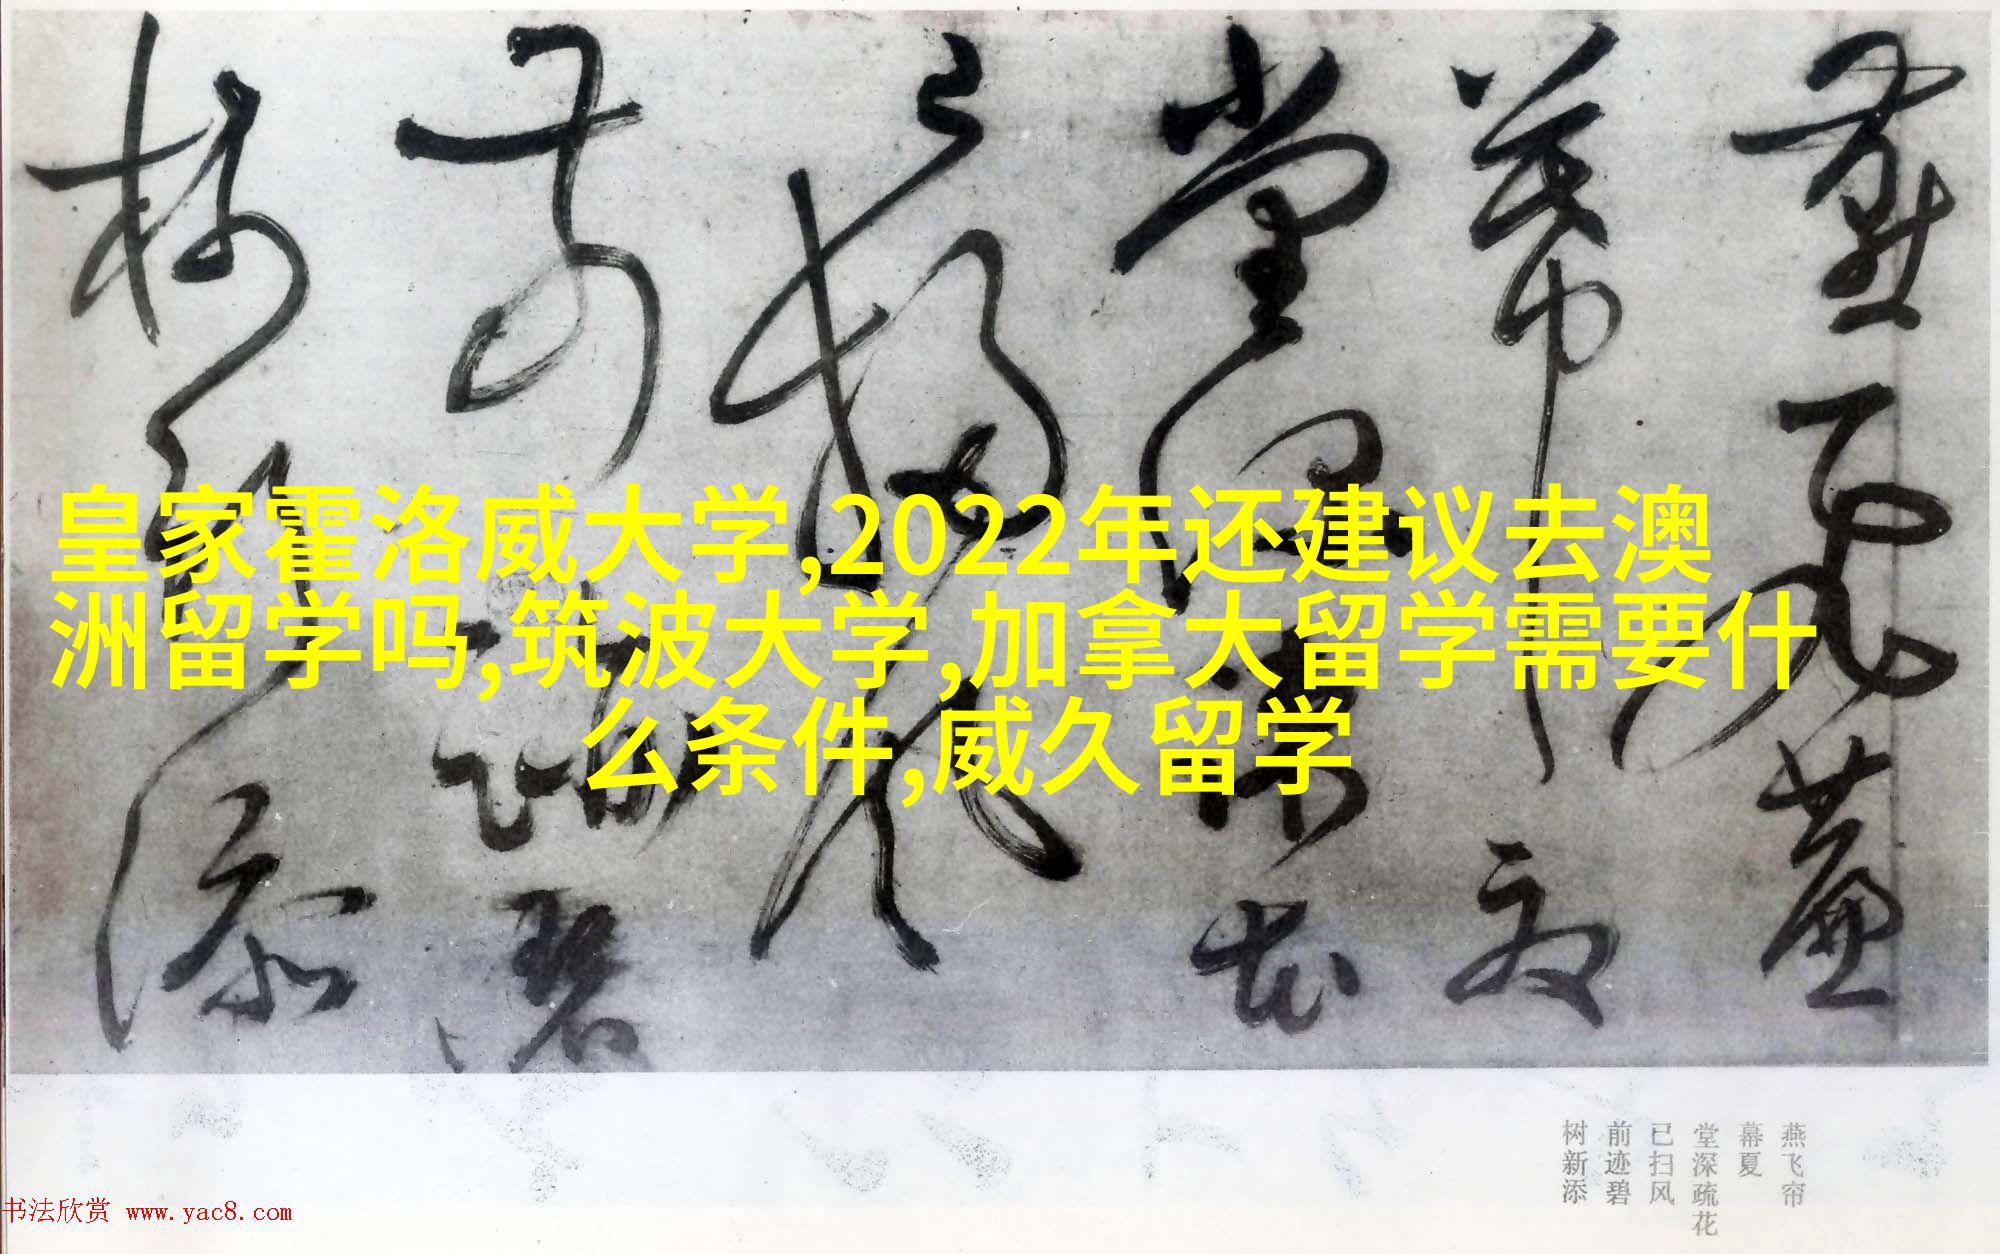 皇家霍洛威大学,2022年还建议去澳
洲留学吗,筑波大学,加拿大留学需要什
么条件,威久留学
燕飞帘
幕夏
堂深疏花
已扫风
前迹碧
树新添
书法欣赏 www.yac8.com